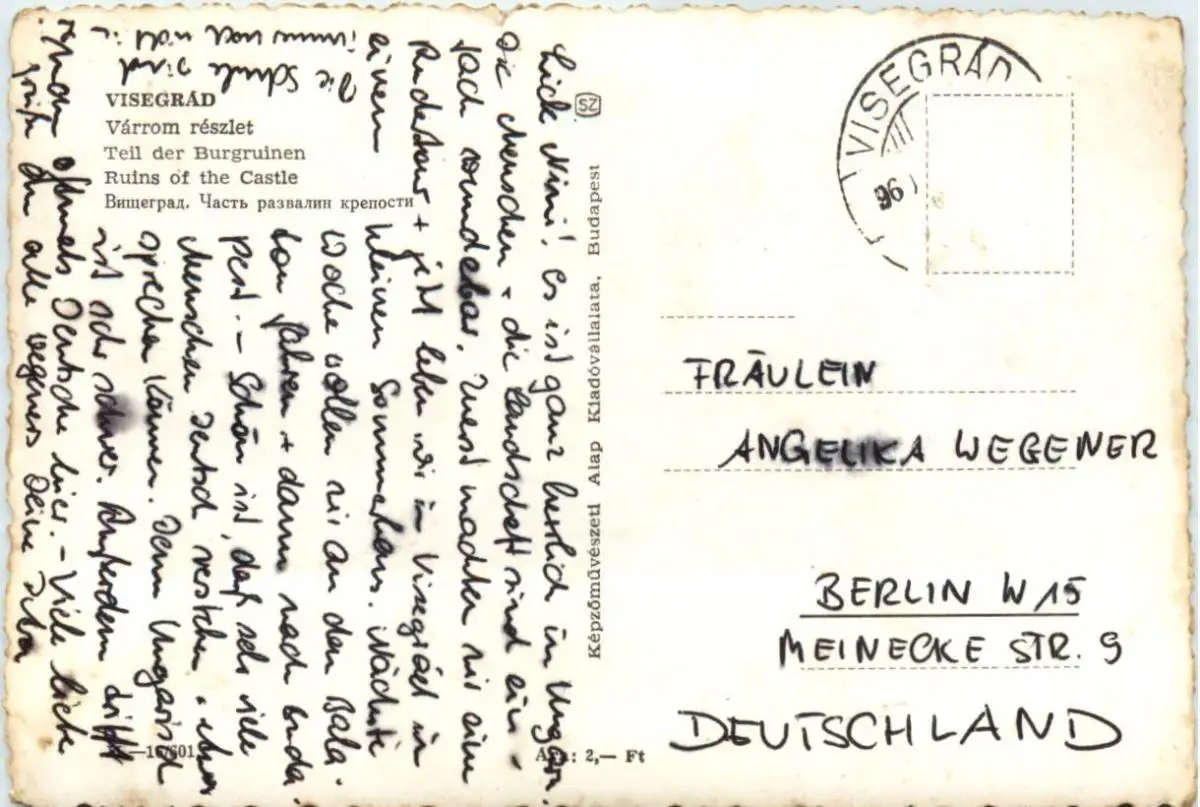 VISEGRÁD
Várrom részlet
Teil der Burgruinen
Ruins of the Castle
Вишеград. Часть развалин крепости
SZ
Képzőművészeti Alap Kiadóvállalata, Budapest
Ára: 2,— Ft
VISEGRÁD
96
Liebe Nimi! es ist ganz herrlich in Ungarn.
Die Menschen + die Landschaft sind ein-
fach wunderbar. Zuerst machten wir eine
Rundetour + jetzt leben wir in Visegrád in
einem kleinen Sommerhaus. Nächste
Woche wollen wir an den Bala-
ton fahren + dann nach Buda
pest. – Schön ist, daß sehr viele
Menschen Deutsch verstehen + etwas
sprechen können. Denn Ungarisch
ist sehr schwer. Außerdem trifft
man oftmals Deutsche hier. – Viele liebe
Grüße an alle Wegeners Deine
Die Schule wird
immer noch nicht
FRÄULEIN
ANGELIKA WEGENER
BERLIN W 15
MEINECKE STR. 9
DEUTSCHLAND